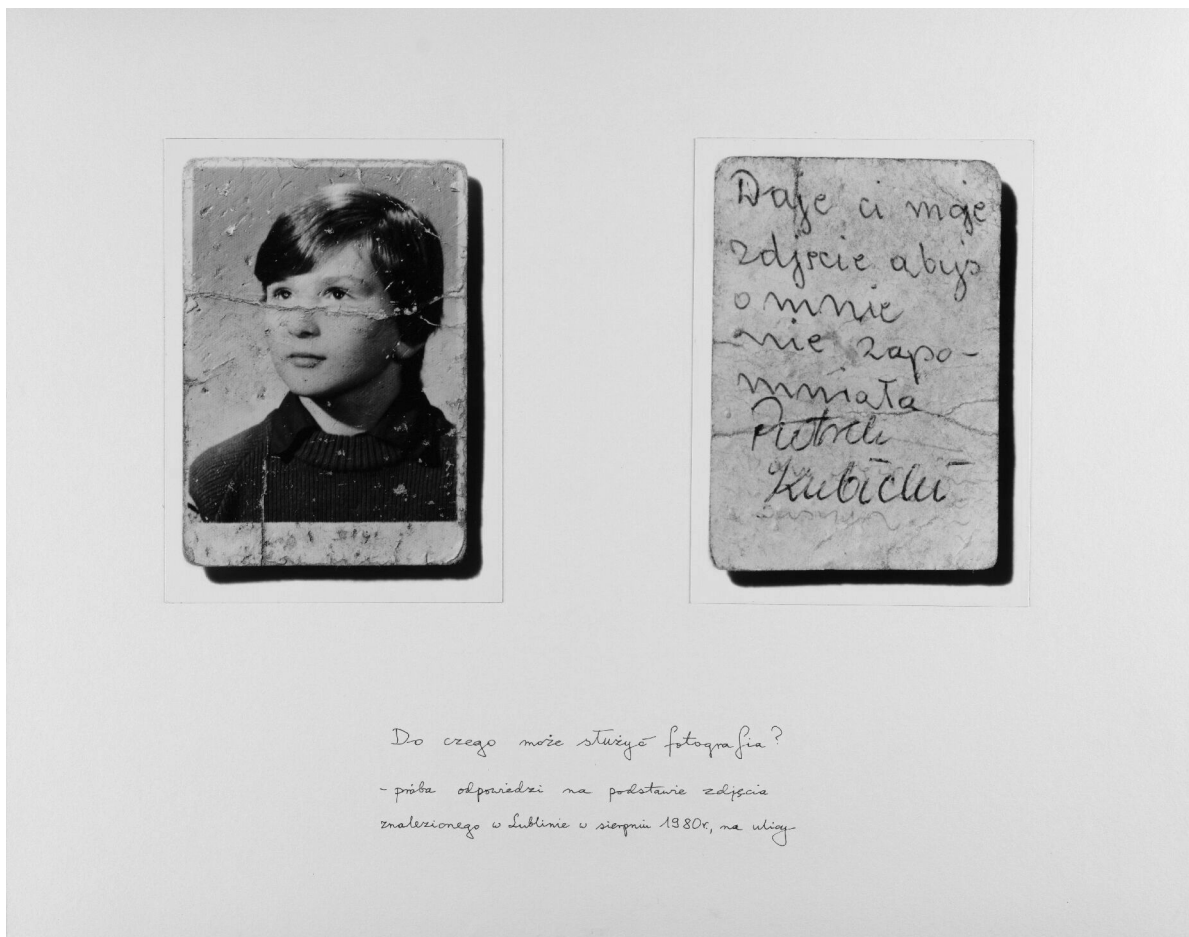 Daje ci moje
zdjęcie abyś
o mnie
nie zapo-
mniała
Kubicki
Do czego może służyć fotografia?
- próba odpowiedzi na podstawie zdjęcia
znalezionego w Lublinie w sierpniu 1980r., na ulicy